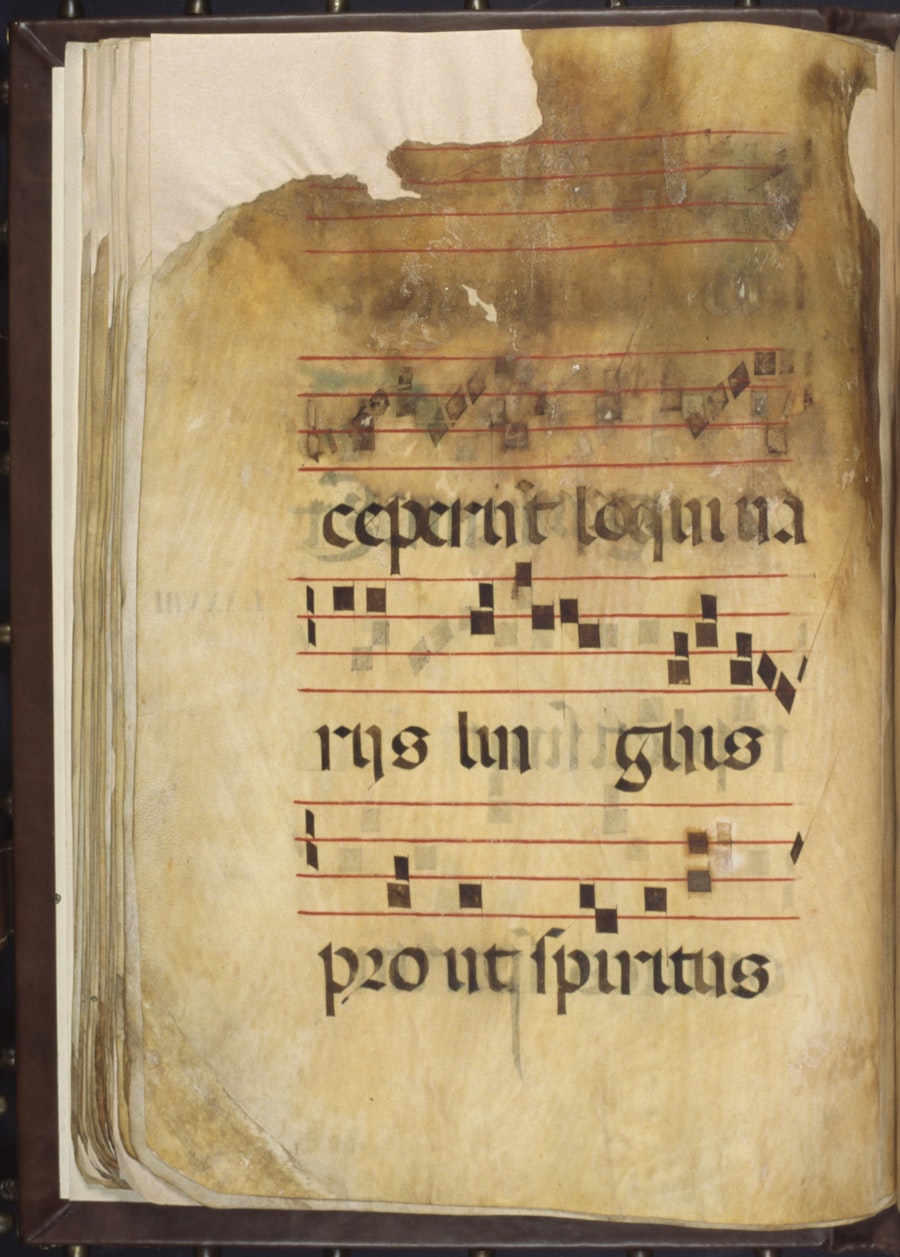 ceperūt loqui ua
rijs lin guis
prout spiritus